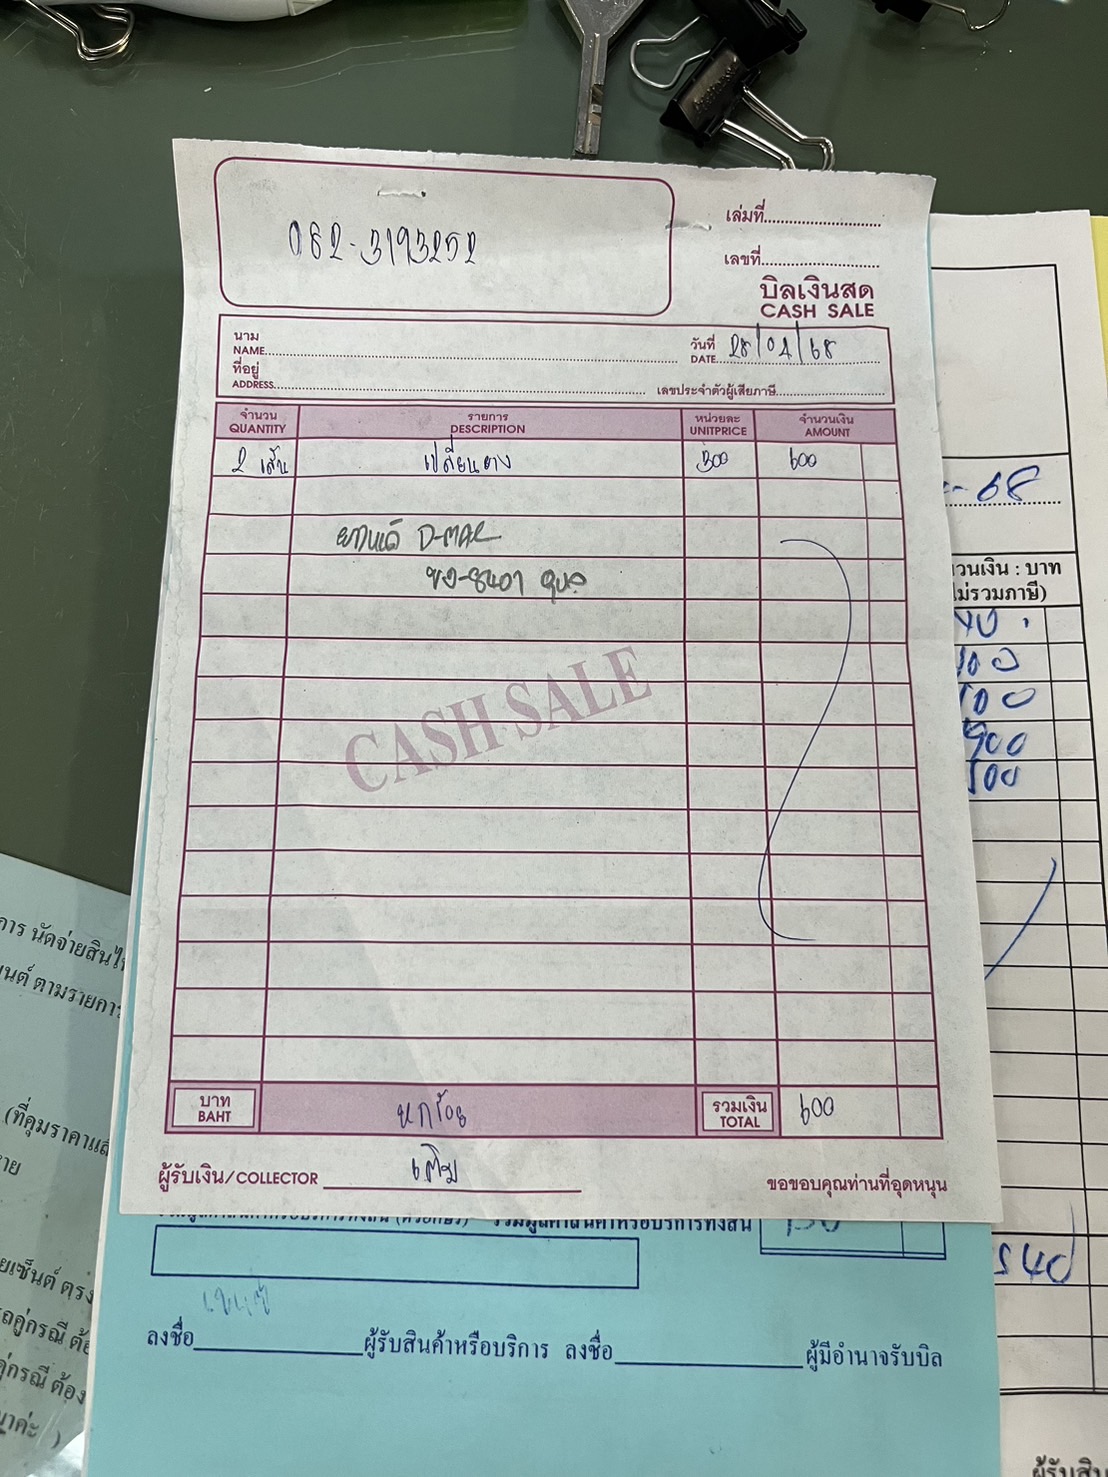 082-3193252
เล่มที่
เลขที่
บิลเงินสด
CASH SALE
นาม
NAME
วันที่
DATE 28/04/68
ที่อยู่
ADDRESS
เลขประจำตัวผู้เสียภาษี
จำนวน รายการ หน่วยละ จำนวนเงิน
QUANTITY DESCRIPTION UNITPRICE AMOUNT
2 เส้น เปลี่ยนยาง 300 600
D-MAX
8401 อุบล
CASH SALE
บาท
BAHT
หกร้อย
รวมเงิน
TOTAL
600
ผู้รับเงิน/COLLECTOR
ขอขอบคุณท่านที่อุดหนุน
-68
วนเงิน : บาท
ไม่รวมภาษี)
900
540
การ นัดจ่ายสินไ
ยนต์ ตามรายการ
(ที่คุมราคาแล
าย
ยเซ็นต์ ตรง
ลคู่กรณี ต้อ
คู่กรณี ต้อง
นาค่ะ )
รวมมูลค่าสินค้าหรือบริการทั้งสิ้น
ลงชื่อ ผู้รับสินค้าหรือบริการ ลงชื่อ ผู้มีอำนาจรับบิล
ผู้รับสิน